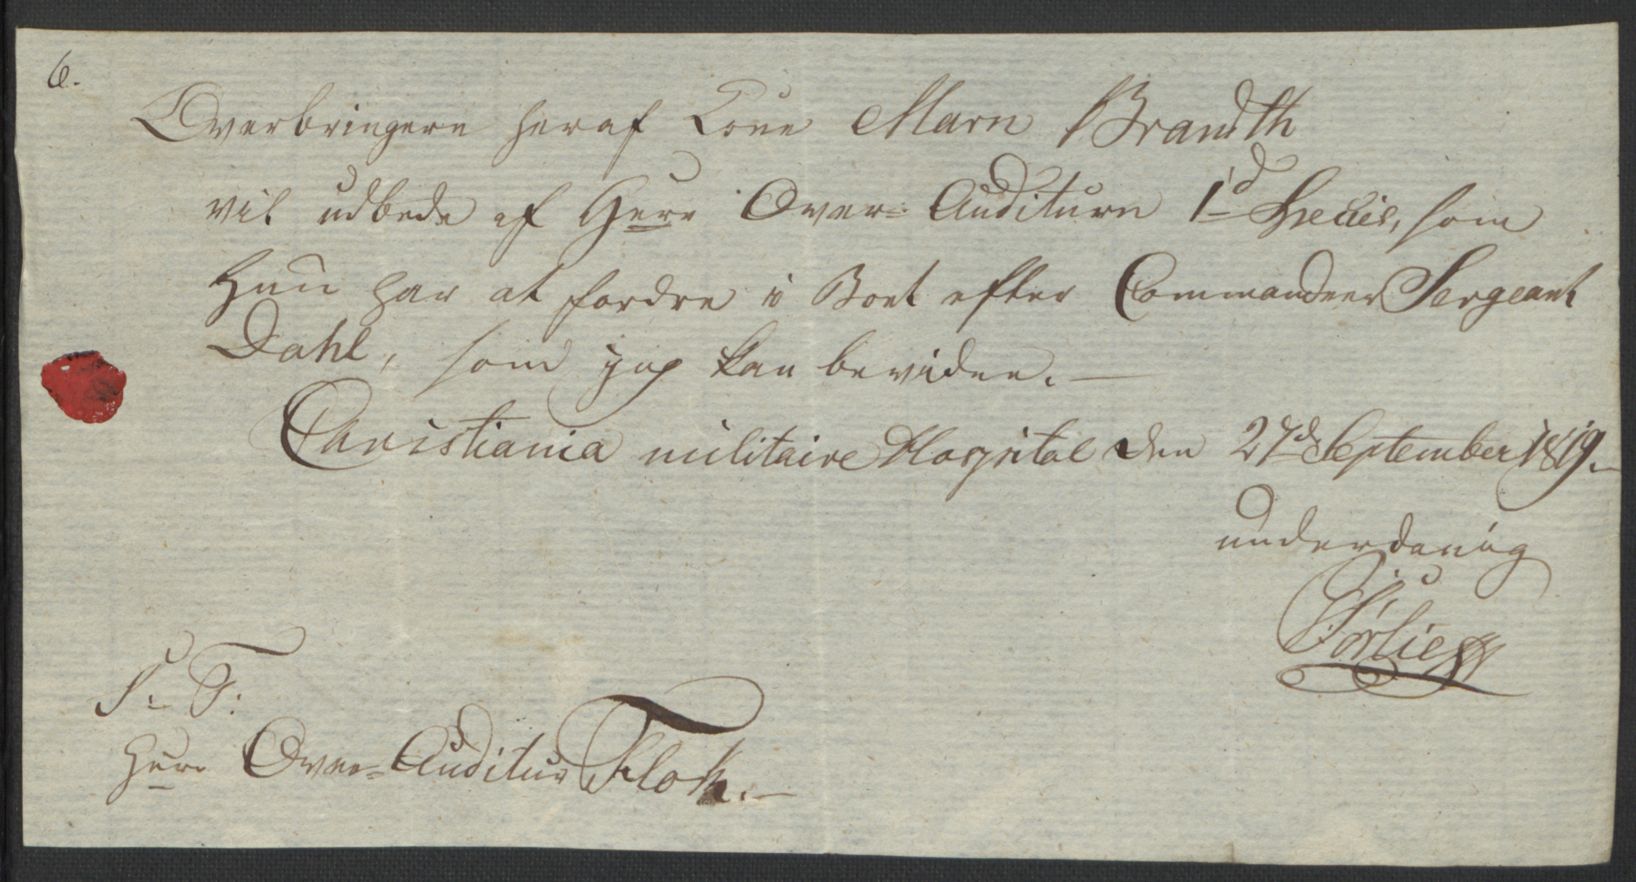 6.
Overbringeren heraf Kone Maren Brandth
vil udbede af Herr Over-Auditeuren 1d Specie, som
Hun har at fordre i Boet efter Commandeer Sergeant
Dahl, som jeg kan bevidne. —
Christiania militaire Hospital den 27d September 1819. —
underdanig
Sörlie
S. T.
Herr Over-Auditeur Flok. —